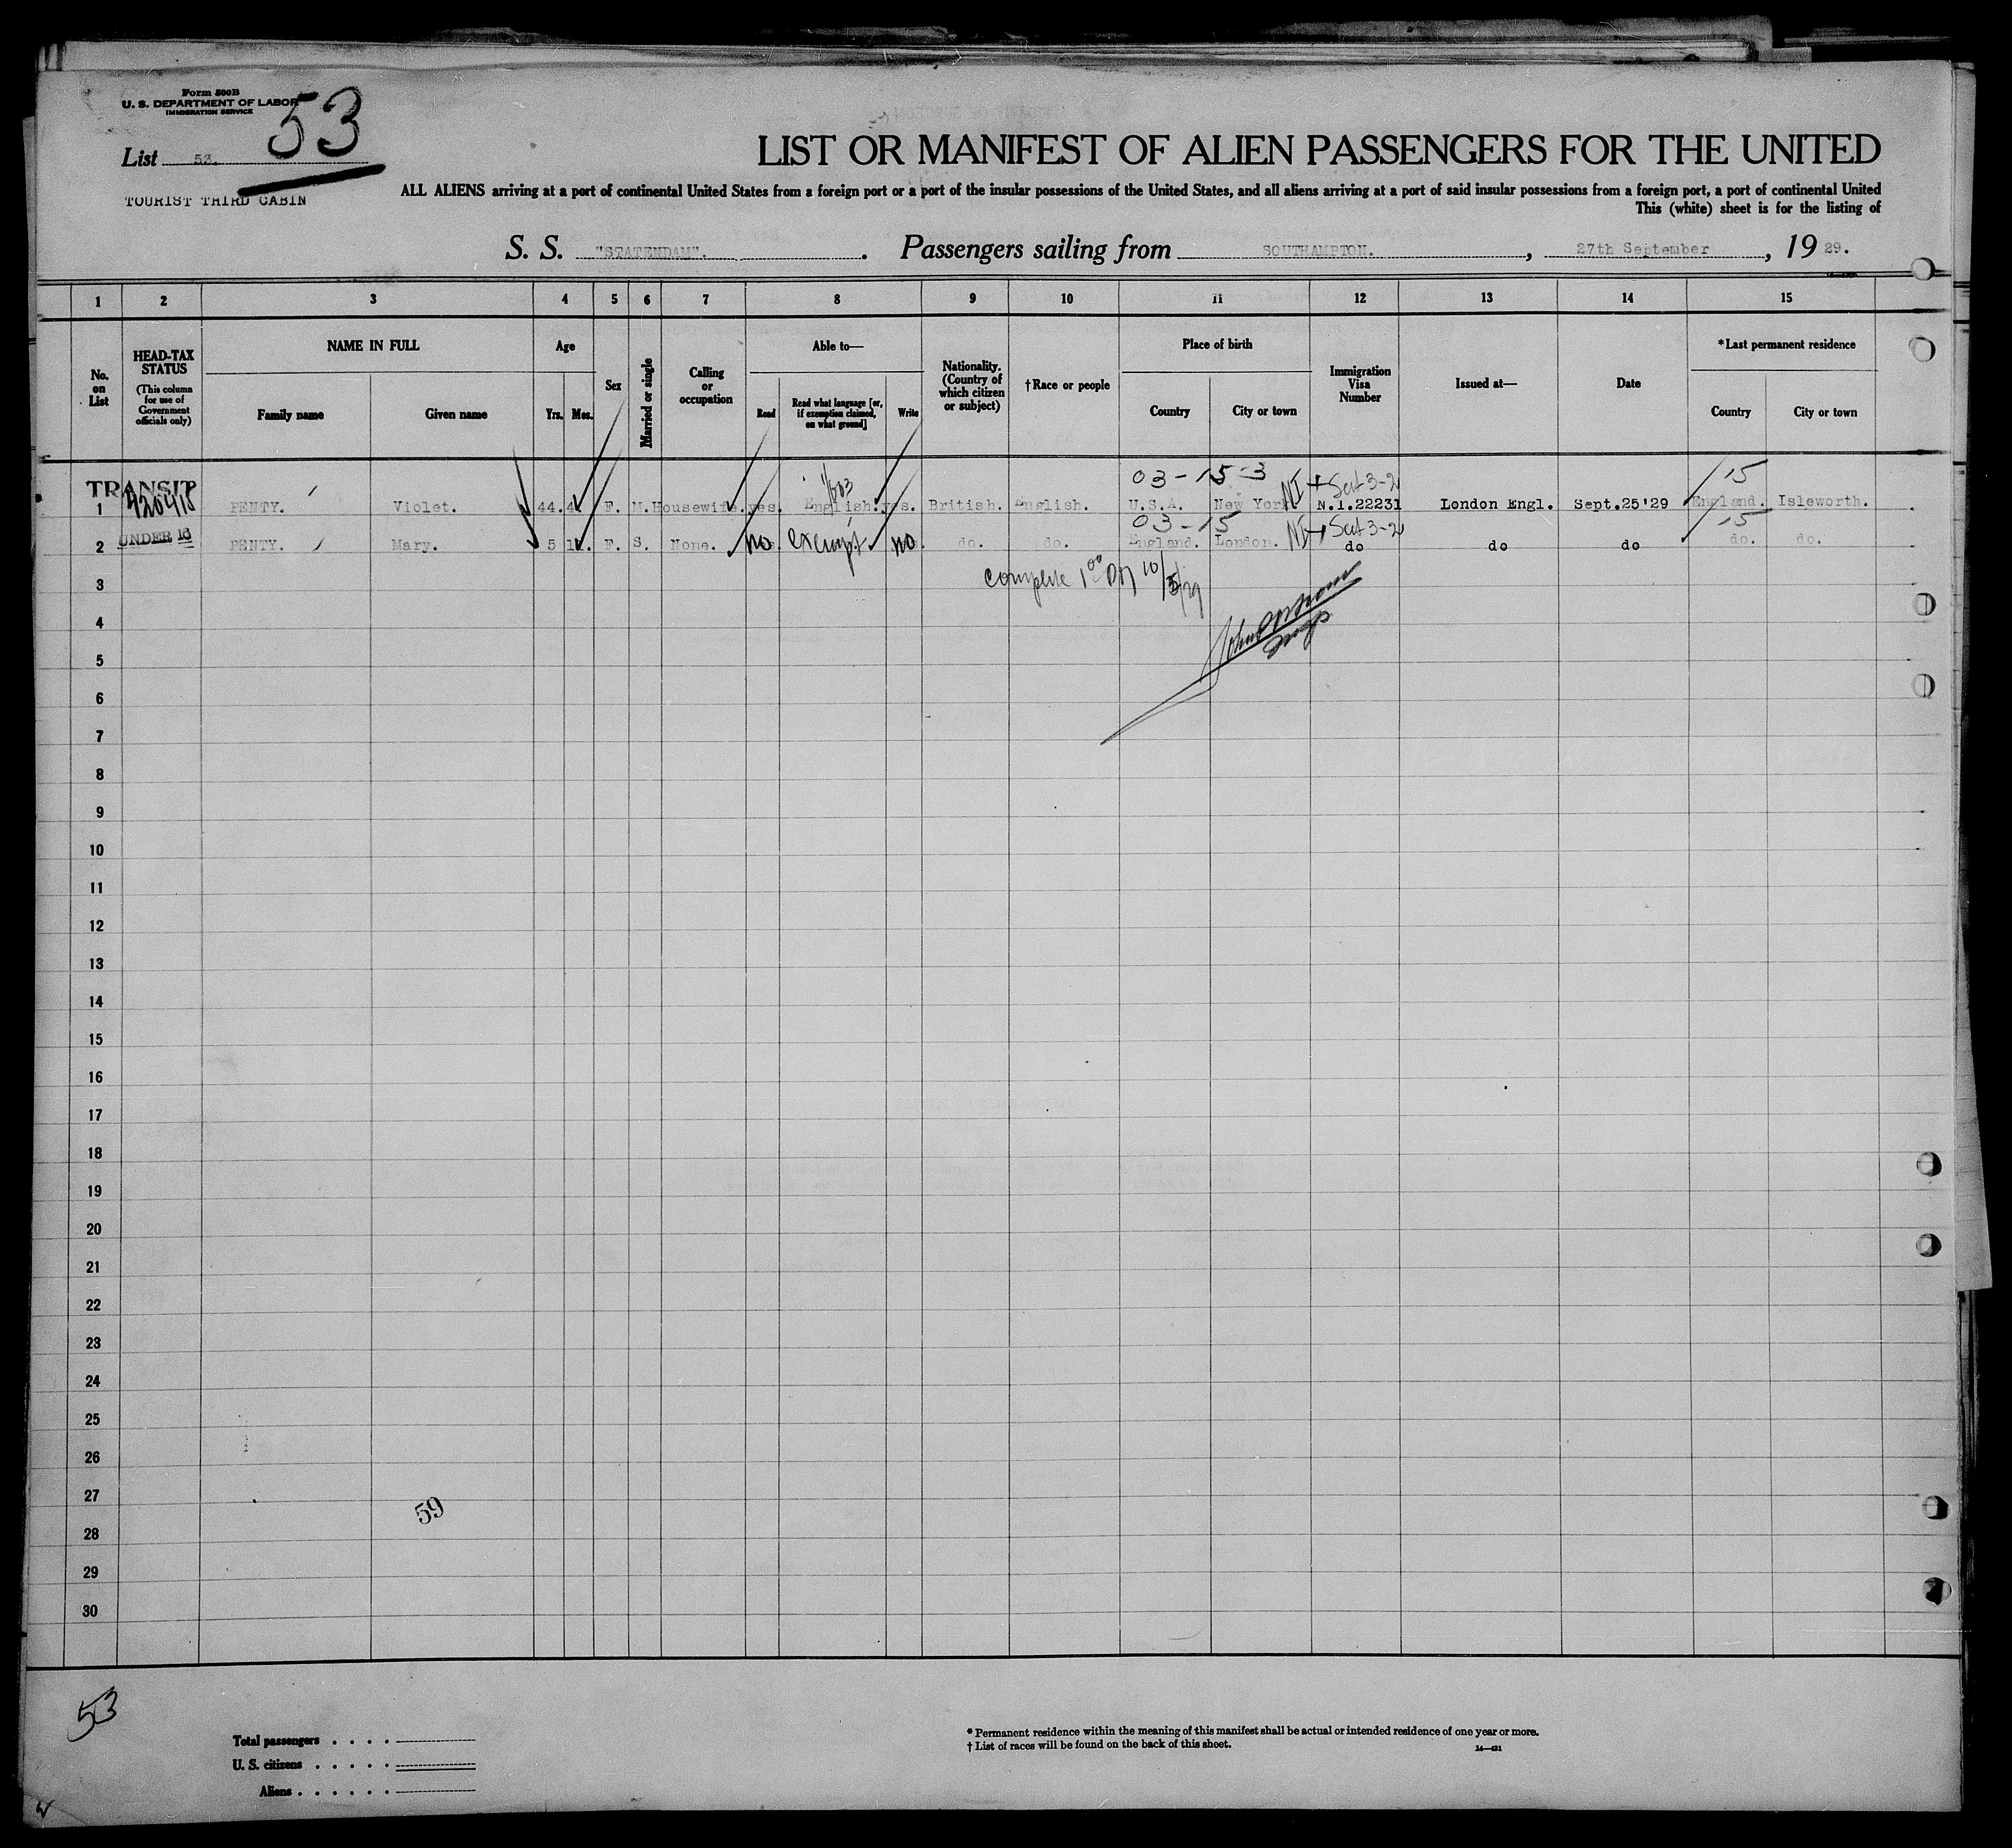 Form 500B
U. S. DEPARTMENT OF LABOR
IMMIGRATION SERVICE
53
List 53.
TOURIST THIRD CABIN
LIST OR MANIFEST OF ALIEN PASSENGERS FOR THE UNITED
ALL ALIENS arriving at a port of continental United States from a foreign port or a port of the insular possessions of the United States, and all aliens arriving at a port of said insular possessions from a foreign port, a port of continental United
This (white) sheet is for the listing of
S. S. "STATENDAM". Passengers sailing from SOUTHAMPTON. , 27th September , 19 29.
1 2 3 4 5 6 7 8 9 10 11 12 13 14 15
No. on List
HEAD-TAX STATUS (This column for use of Government officials only)
NAME IN FULL
Family name Given name
Age
Yrs. Mos.
Sex
Married or single
Calling or occupation
Able to—
Read Read what language [or, if exemption claimed, on what ground] Write
Nationality. (Country of which citizen or subject)
†Race or people
Place of birth
Country City or town
Immigration Visa Number
Issued at—
Date
*Last permanent residence
Country City or town
03-15-3 15
TRANSIT
1 PENTY. Violet. 44. F. M. Housewife. yes. English. yes. British. English. U.S.A. New York N.I.22231 London Engl. Sept.25'29 England. Isleworth.
UNDER 16 03-15 15
2 PENTY. Mary. 5 F. S. None. no exempt no. do. do. England. London. do do do do. do.
3 complete
4
5
6
7
8
9
10
11
12
13
14
15
16
17
18
19
20
21
22
23
24
25
26
27
59
28
29
30
53
Total passengers . . . .
U. S. citizens . . . . .
Aliens . . . . . .
* Permanent residence within the meaning of this manifest shall be actual or intended residence of one year or more.
† List of races will be found on the back of this sheet.
14—431